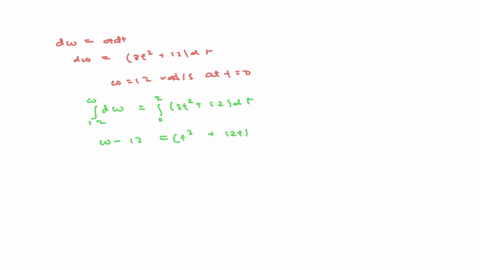 dω = αdt
dω = (3t² + 12) dt
ω = 12 rad/s at t=0
∫₁₂^ω dω = ∫₀² (3t² + 12) dt
ω - 12 = (t³ + 12t)